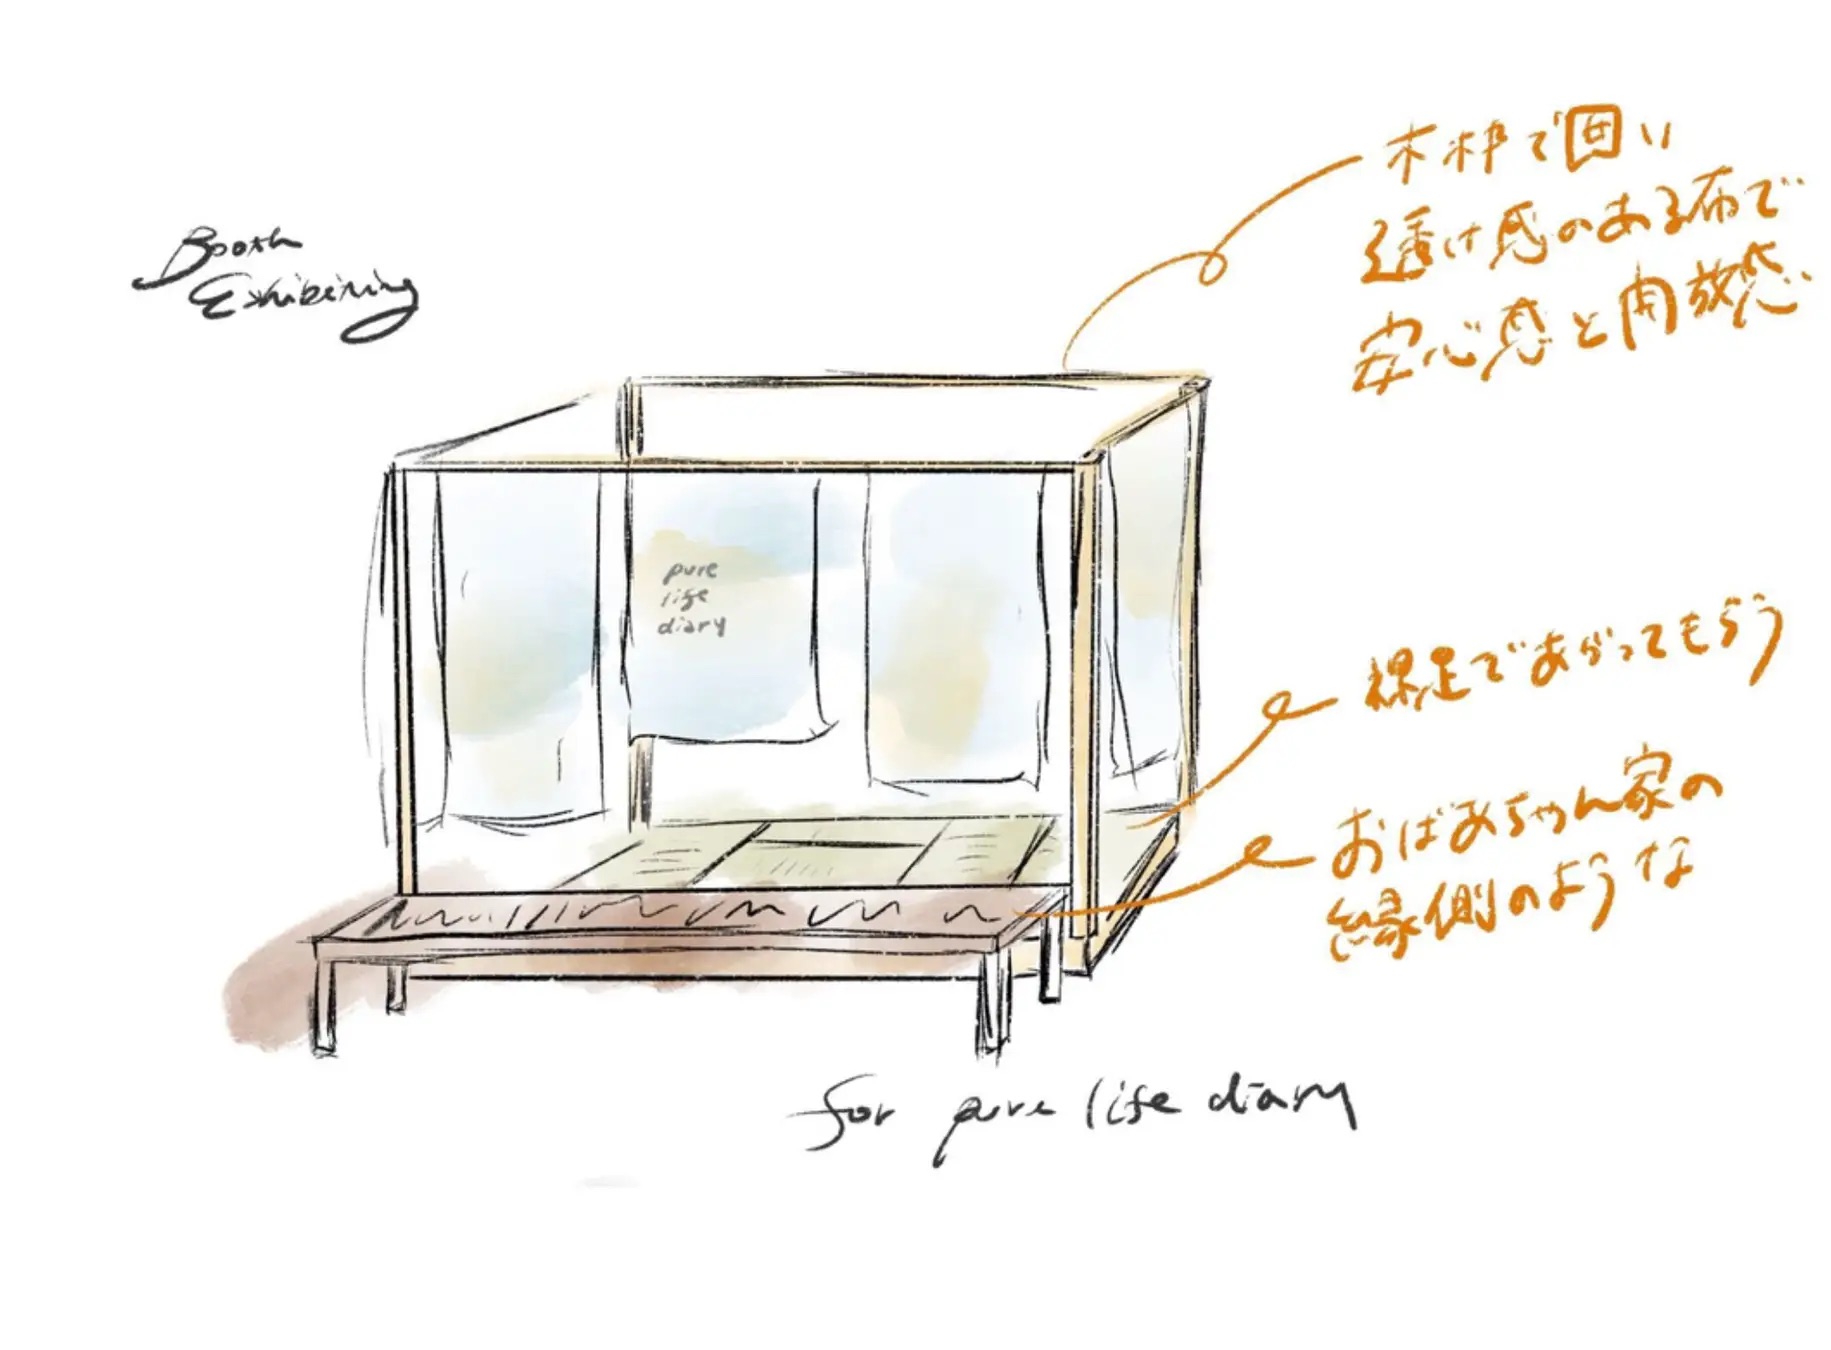 Booth
Exhibining
木枠で囲い
透け感のある布で
安心感と開放感
pure
life
diary
裸足であがってもらう
おばあちゃん家の
縁側のような
for pure life diary